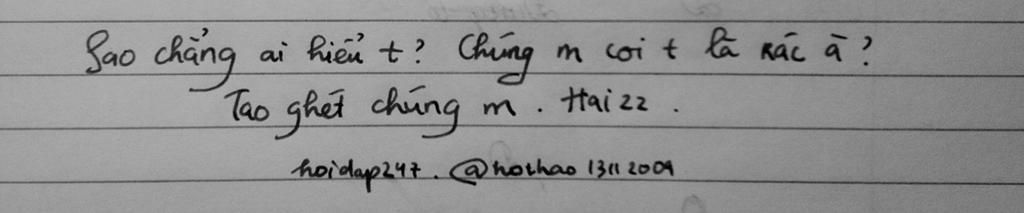 Sao chẳng ai hiểu t? Chúng m coi t là Rác à?
Tao ghét chúng m. Haizz.
hoidap247. @hothao13112009